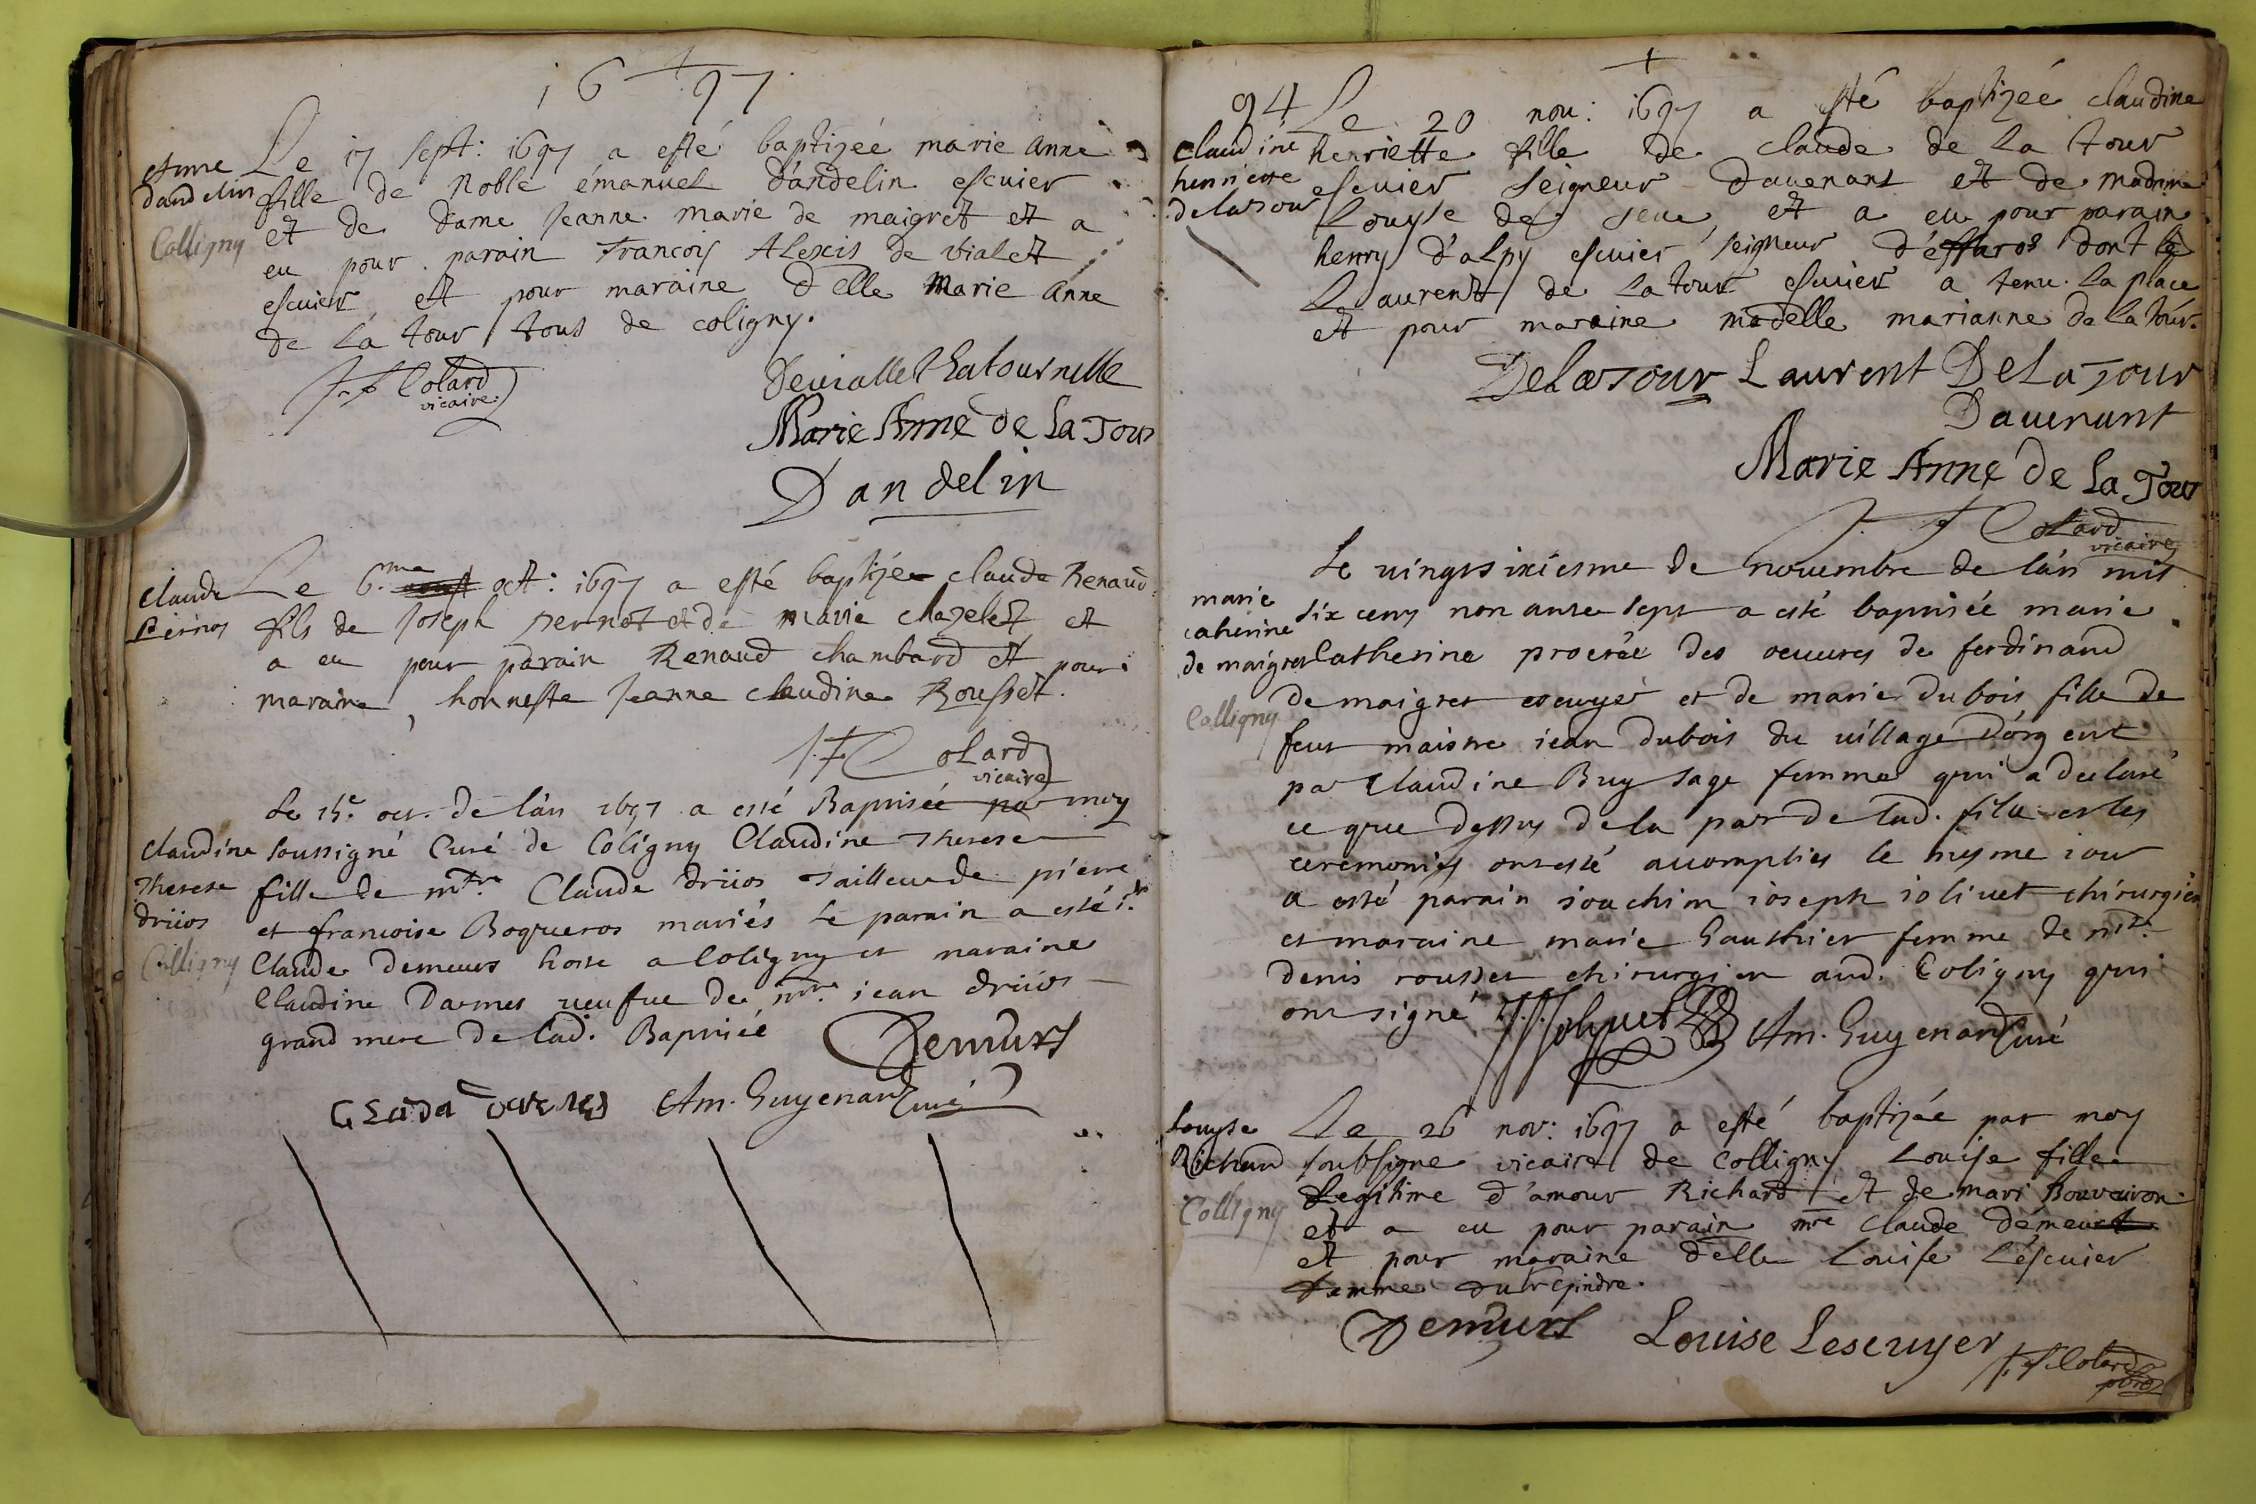 1697
Anne
dandelin
Colligny
Le 17 sept: 1697 a esté baptizeé marie anne
fille de Noble émanuel d'andelin escuier
et de dame Jeanne marie de maigret et a
eu pour parain francois Alexis de vialet
escuier et pour maraine d'elle Marie anne
de La tour tous de coligny.
J f Colard
vicaire
Marie Anne de La Tour
Dandelin
claude
Pernos
Le 6.me oct: 1697 a esté baptizé claude Renaud
fils de Joseph pernot et de marie chazelet et
a eu pour parain Renaud chambard et pour
maraine, honneste Jeanne claudine Rousset.
J f Colard
vicaire
claudine
Therese
driios
Colligny
Le 15.e oct. de l'an 1697 a esté Baptisée par moy
soussigné Curé de Coligny Claudine Therese
fille de mtre Claude driios tailleur de pierre
et francoise Boqueros mariés le parain a esté sr
Claude demeurs hoste a Coligny et maraine
Claudine Darmes veufve de mre iean driios
grand mere de lad. Baptisée
Demurs
Am. Guyenard Curé
94
claudine
henriette
de latour
Le 20 nou: 1697 a esté baptizeé claudine
henriette fille de claude de La tour
escuier seigneur dauenant et de madame
Louyse de seue, et a eu pour parain
henry d'alpy escuier seigneur d'effaros dont le
Laurent de La tour escuier a tenu La place
et pour maraine madelle marianne de La tour.
DeLaTour Laurent DeLaTour
Dauenant
Marie Anne de La Tour
J f Colard
vicaire
marie
catherine
de maigret
Colligny
Le vingt sixiesme de novembre de l'an mil
six cens nonante sept a esté baptisée marie
Catherine procréée des oeuvres de ferdinand
de maigret escuyé et de marie dubois fille de
feut maistre iean dubois du village d'orgent
par Claudine Buy sage femme qui a declaré
ce que dessus de la par de lad. fille et les
ceremonies ont esté accomplies le mesme iour
a esté parain ioachim ioseph iolivet chirurgien
et maraine marie Gauthier femme de mre
denis rousset chirurgien aud. Coligny qui
ont signé JJJolyvet Am. Guyenard Curé
Louyse
Richard
Colligny
Le 26 nov: 1697 a esté baptizée par moy
soubsigne vicaire de Colligny Louise fille
Legitime d'amour Richard et de mari Bouvairon
et a eu pour parain mre claude démeurt
et pour maraine d'elle Louise L'escuier
femme
Demurs Louise Lescuyer
J f Colard